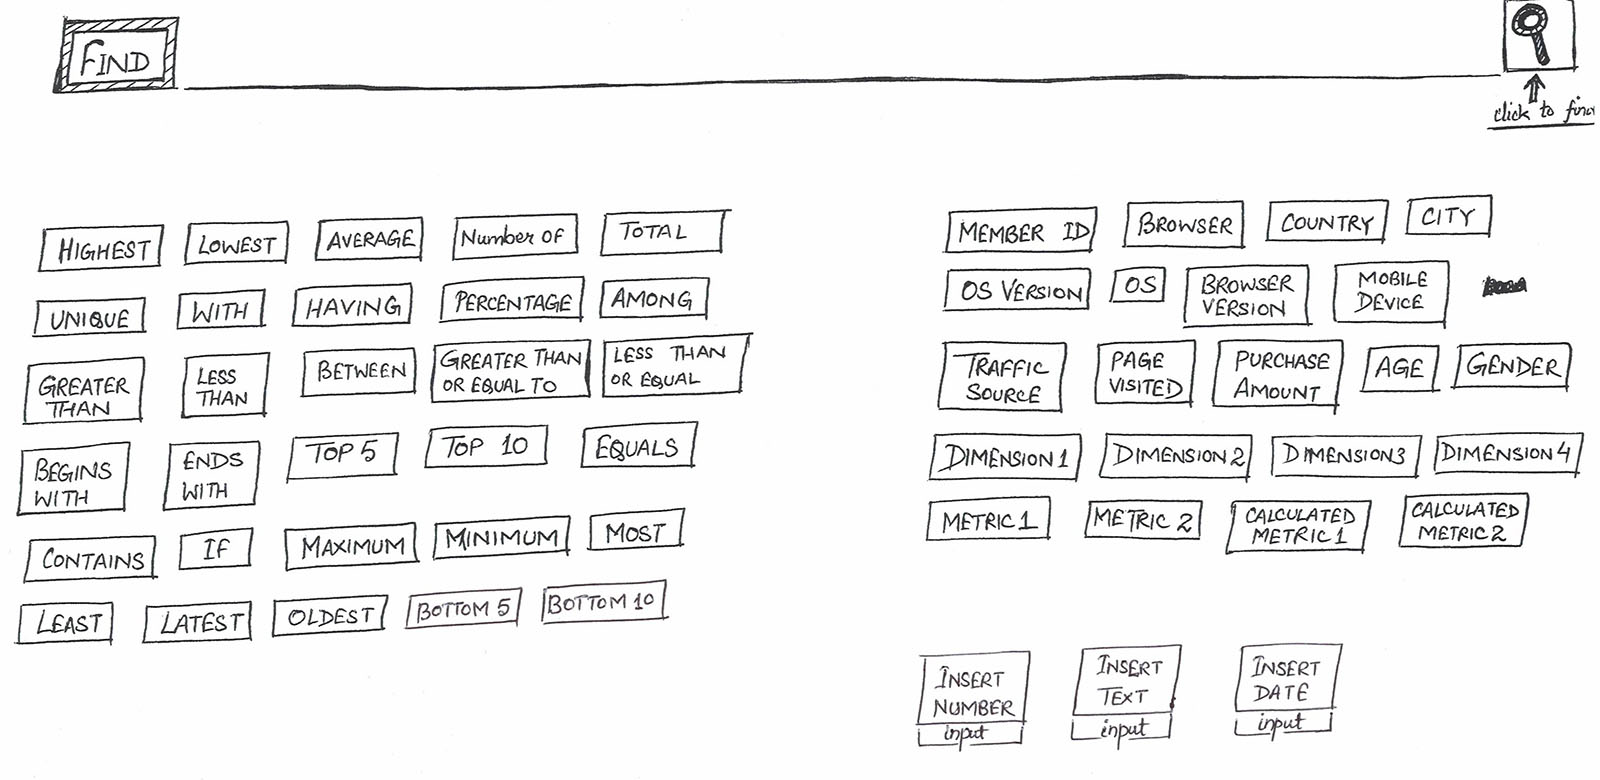 FIND
click to find
HIGHEST
LOWEST
AVERAGE
Number OF
TOTAL
UNIQUE
WITH
HAVING
PERCENTAGE
AMONG
GREATER
THAN
LESS
THAN
BETWEEN
GREATER THAN
OR EQUAL TO
LESS THAN
OR EQUAL
BEGINS
WITH
ENDS
WITH
TOP 5
TOP 10
EQUALS
CONTAINS
IF
MAXIMUM
MINIMUM
MOST
LEAST
LATEST
OLDEST
BOTTOM 5
BOTTOM 10
MEMBER ID
BROWSER
COUNTRY
CITY
OS VERSION
OS
BROWSER
VERSION
MOBILE
DEVICE
TRAFFIC
SOURCE
PAGE
VISITED
PURCHASE
AMOUNT
AGE
GENDER
DIMENSION 1
DIMENSION 2
DIMENSION 3
DIMENSION 4
METRIC 1
METRIC 2
CALCULATED
METRIC 1
CALCULATED
METRIC 2
INSERT
NUMBER
input
INSERT
TEXT
input
INSERT
DATE
input